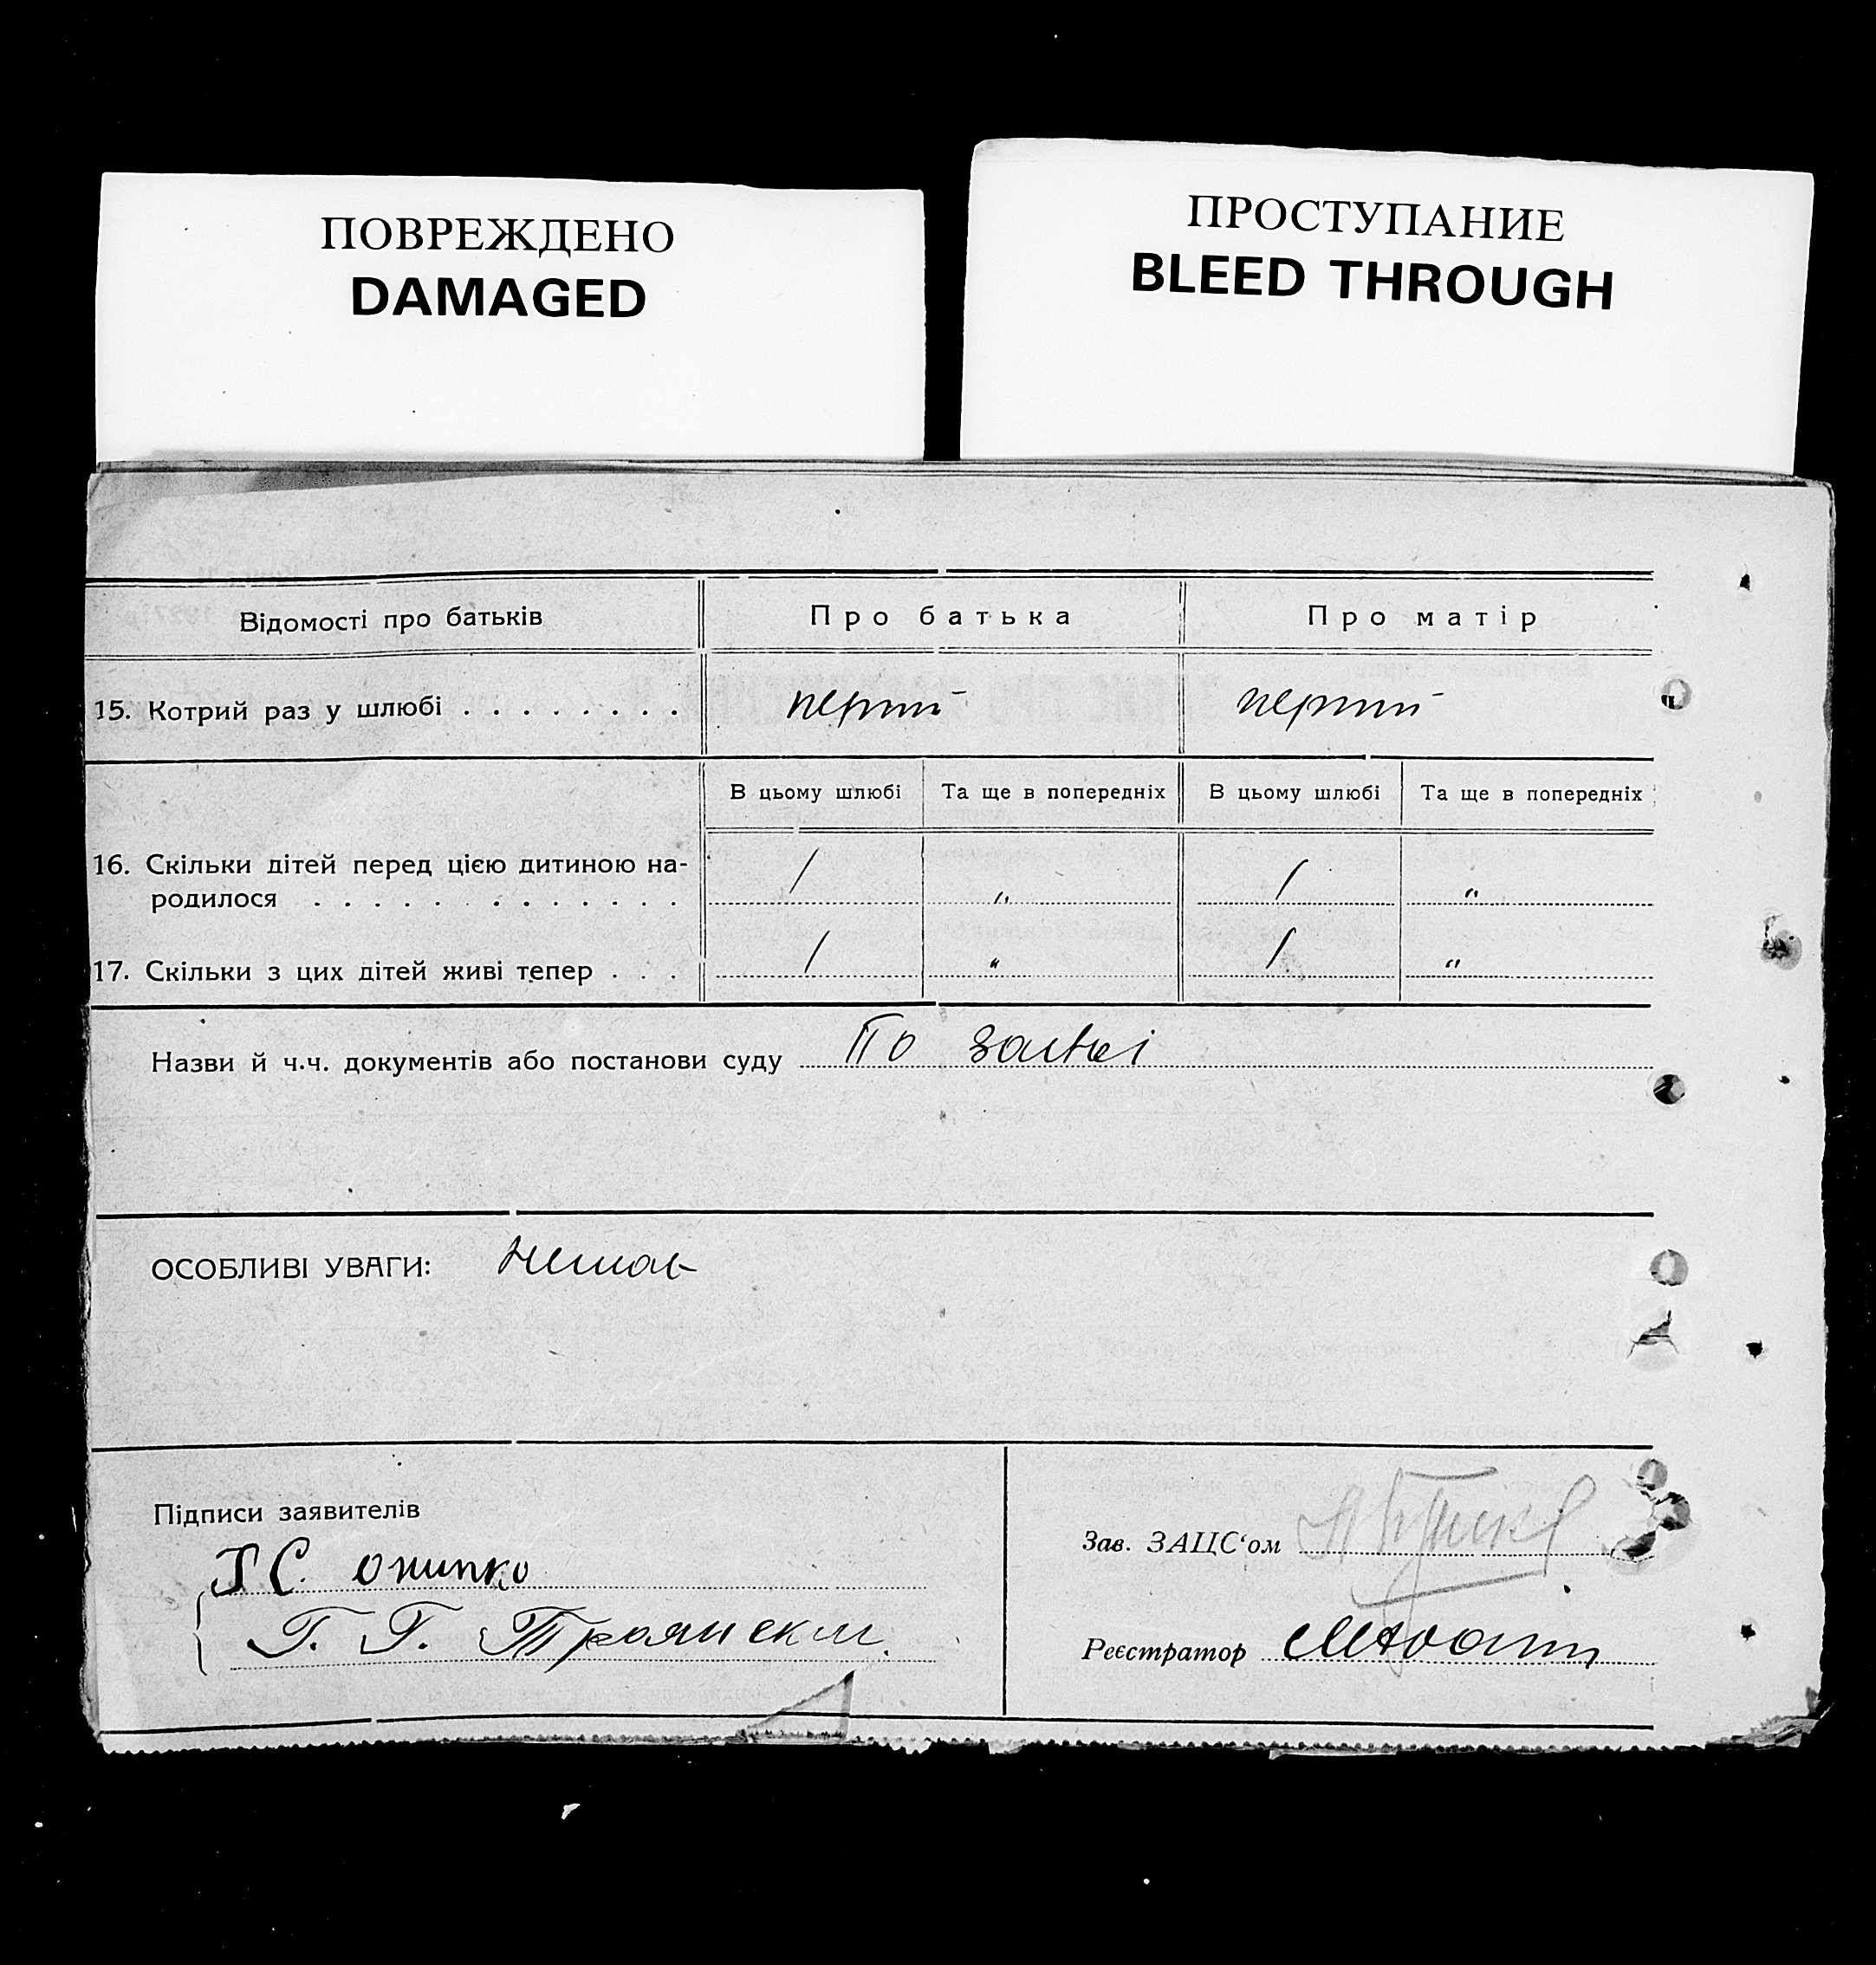 ПОВРЕЖДЕНО
DAMAGED
ПРОСТУПАНИЕ
BLEED THROUGH
Відомості про батьків
Про батька
Про матір
15. Котрий раз у шлюбі . . . . . . . .
перший
перший
В цьому шлюбі
Та ще в попередніх
В цьому шлюбі
Та ще в попередніх
16. Скільки дітей перед цією дитиною на-
родилося . . . . . . . . . . . . .
1
"
1
"
17. Скільки з цих дітей живі тепер . . .
1
"
1
"
Назви й ч.ч. документів або постанови суду По заяві
ОСОБЛИВІ УВАГИ: Немає
Підписи заявителів
С. Онипко
Г. Г. Троянскій.
Зав. ЗАЦС‘ом
Реєстратор